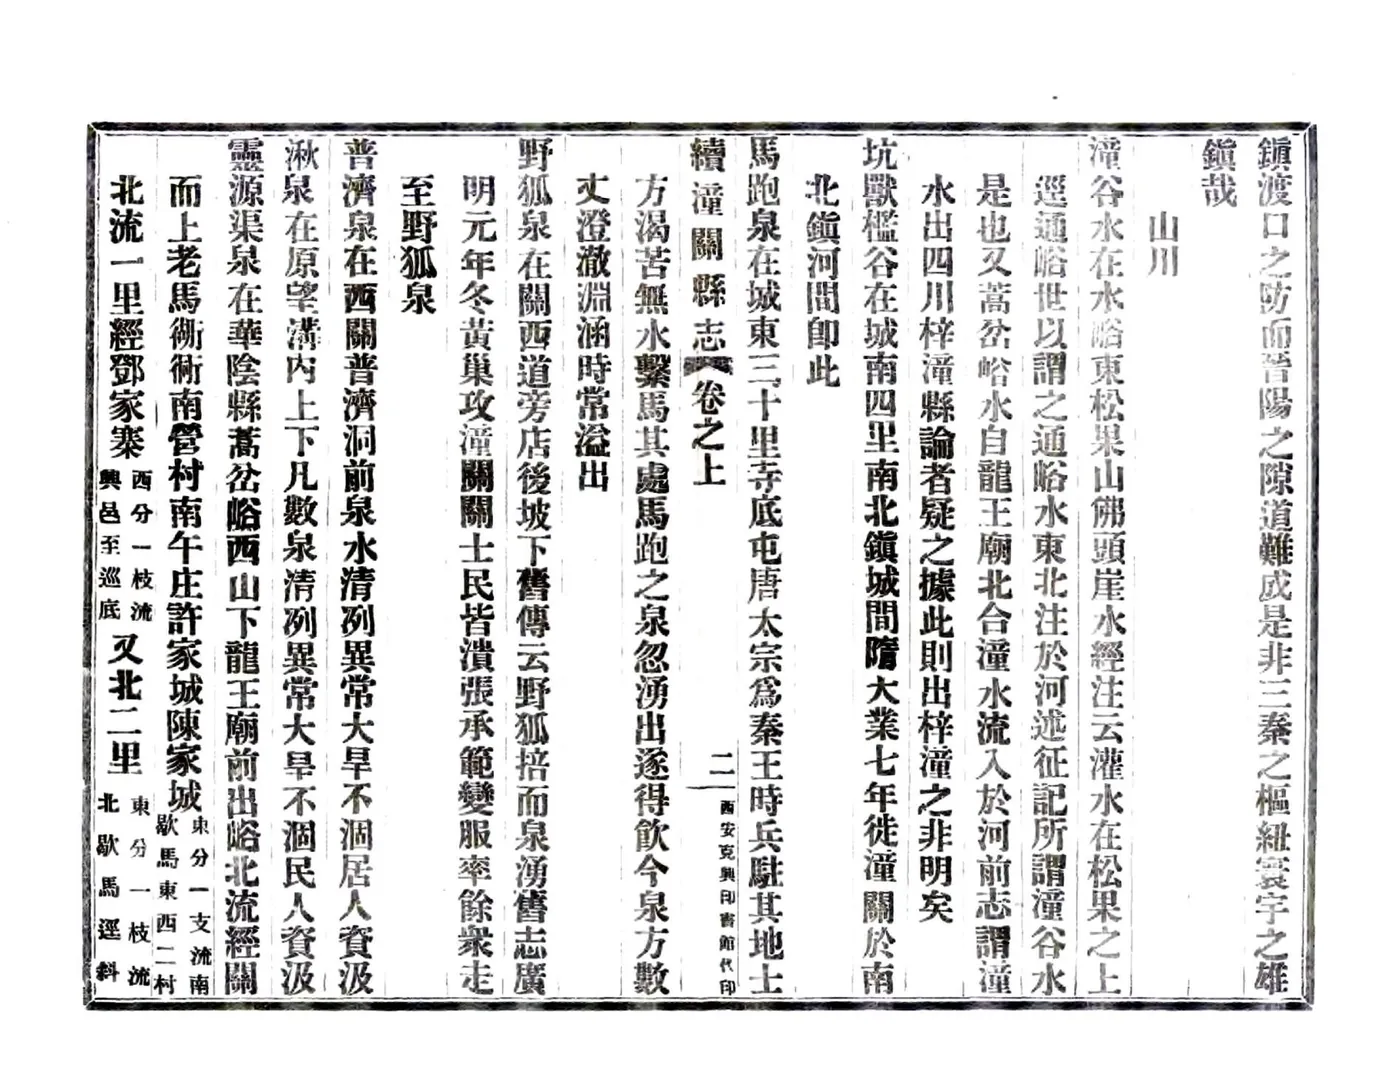 鎭渡口之防而晉陽之隙道難成是非三秦之樞紐寰宇之雄
鎭哉
山川
潼谷水在水峪東松果山佛頭崖水經注云灌水在松果之上
逕通峪世以謂之通峪水東北注於河述征記所謂潼谷水
是也又蒿岔峪水自龍王廟北合潼水流入於河前志謂潼
水出四川梓潼縣論者疑之據此則出梓潼之非明矣
坑獸檻谷在城南四里南北鎭城間隋大業七年徙潼關於南
北鎭河間卽此
馬跑泉在城東三十里寺底屯唐太宗爲秦王時兵駐其地士
續潼關縣志 卷之上 二 西安克興印書館代印
方渴苦無水繫馬其處馬跑之泉忽湧出遂得飮今泉方數
丈澄澈淵涵時常溢出
野狐泉在關西道旁店後坡下舊傳云野狐掊而泉湧舊志廣
明元年冬黃巢攻潼關關士民皆潰張承範變服率餘衆走
至野狐泉
普濟泉在西關普濟洞前泉水清列異常大旱不涸居人資汲
湫泉在原望溝內上下凡數泉清冽異常大旱不涸民人資汲
靈源渠泉在華陰縣蒿岔峪西山下龍王廟前出峪北流經關
而上老馬衕衕南營村南午庄許家城陳家城
東分一支流南
歇馬東西二村
北流一里經鄧家寨
西分一枝流
興邑至巡底
又北二里
東分一枝流
北歇馬逕斜